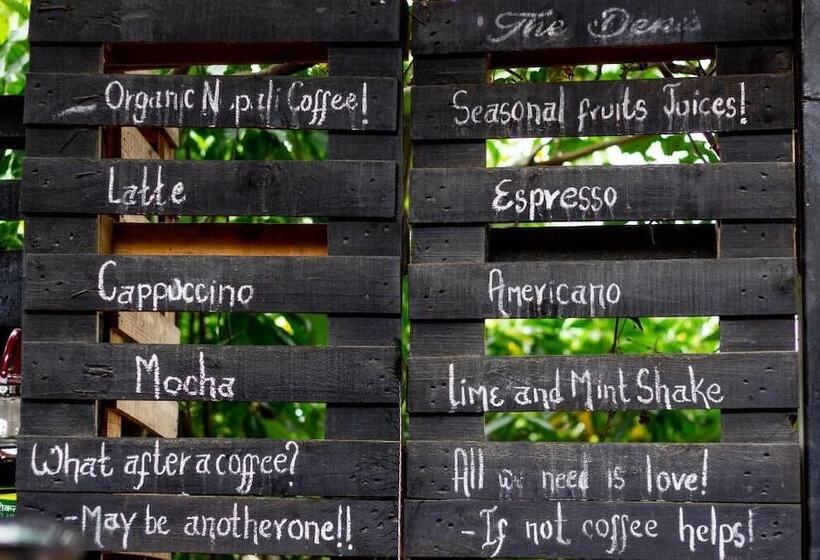 Organic N.pali Coffee!
Latte
Cappuccino
Mocha
What after a coffee?
-May be another one!!
The Dem
Seasonal fruits Juices!
Espresso
Americano
Lime and Mint Shake
All we need is love!
-If not coffee helps!